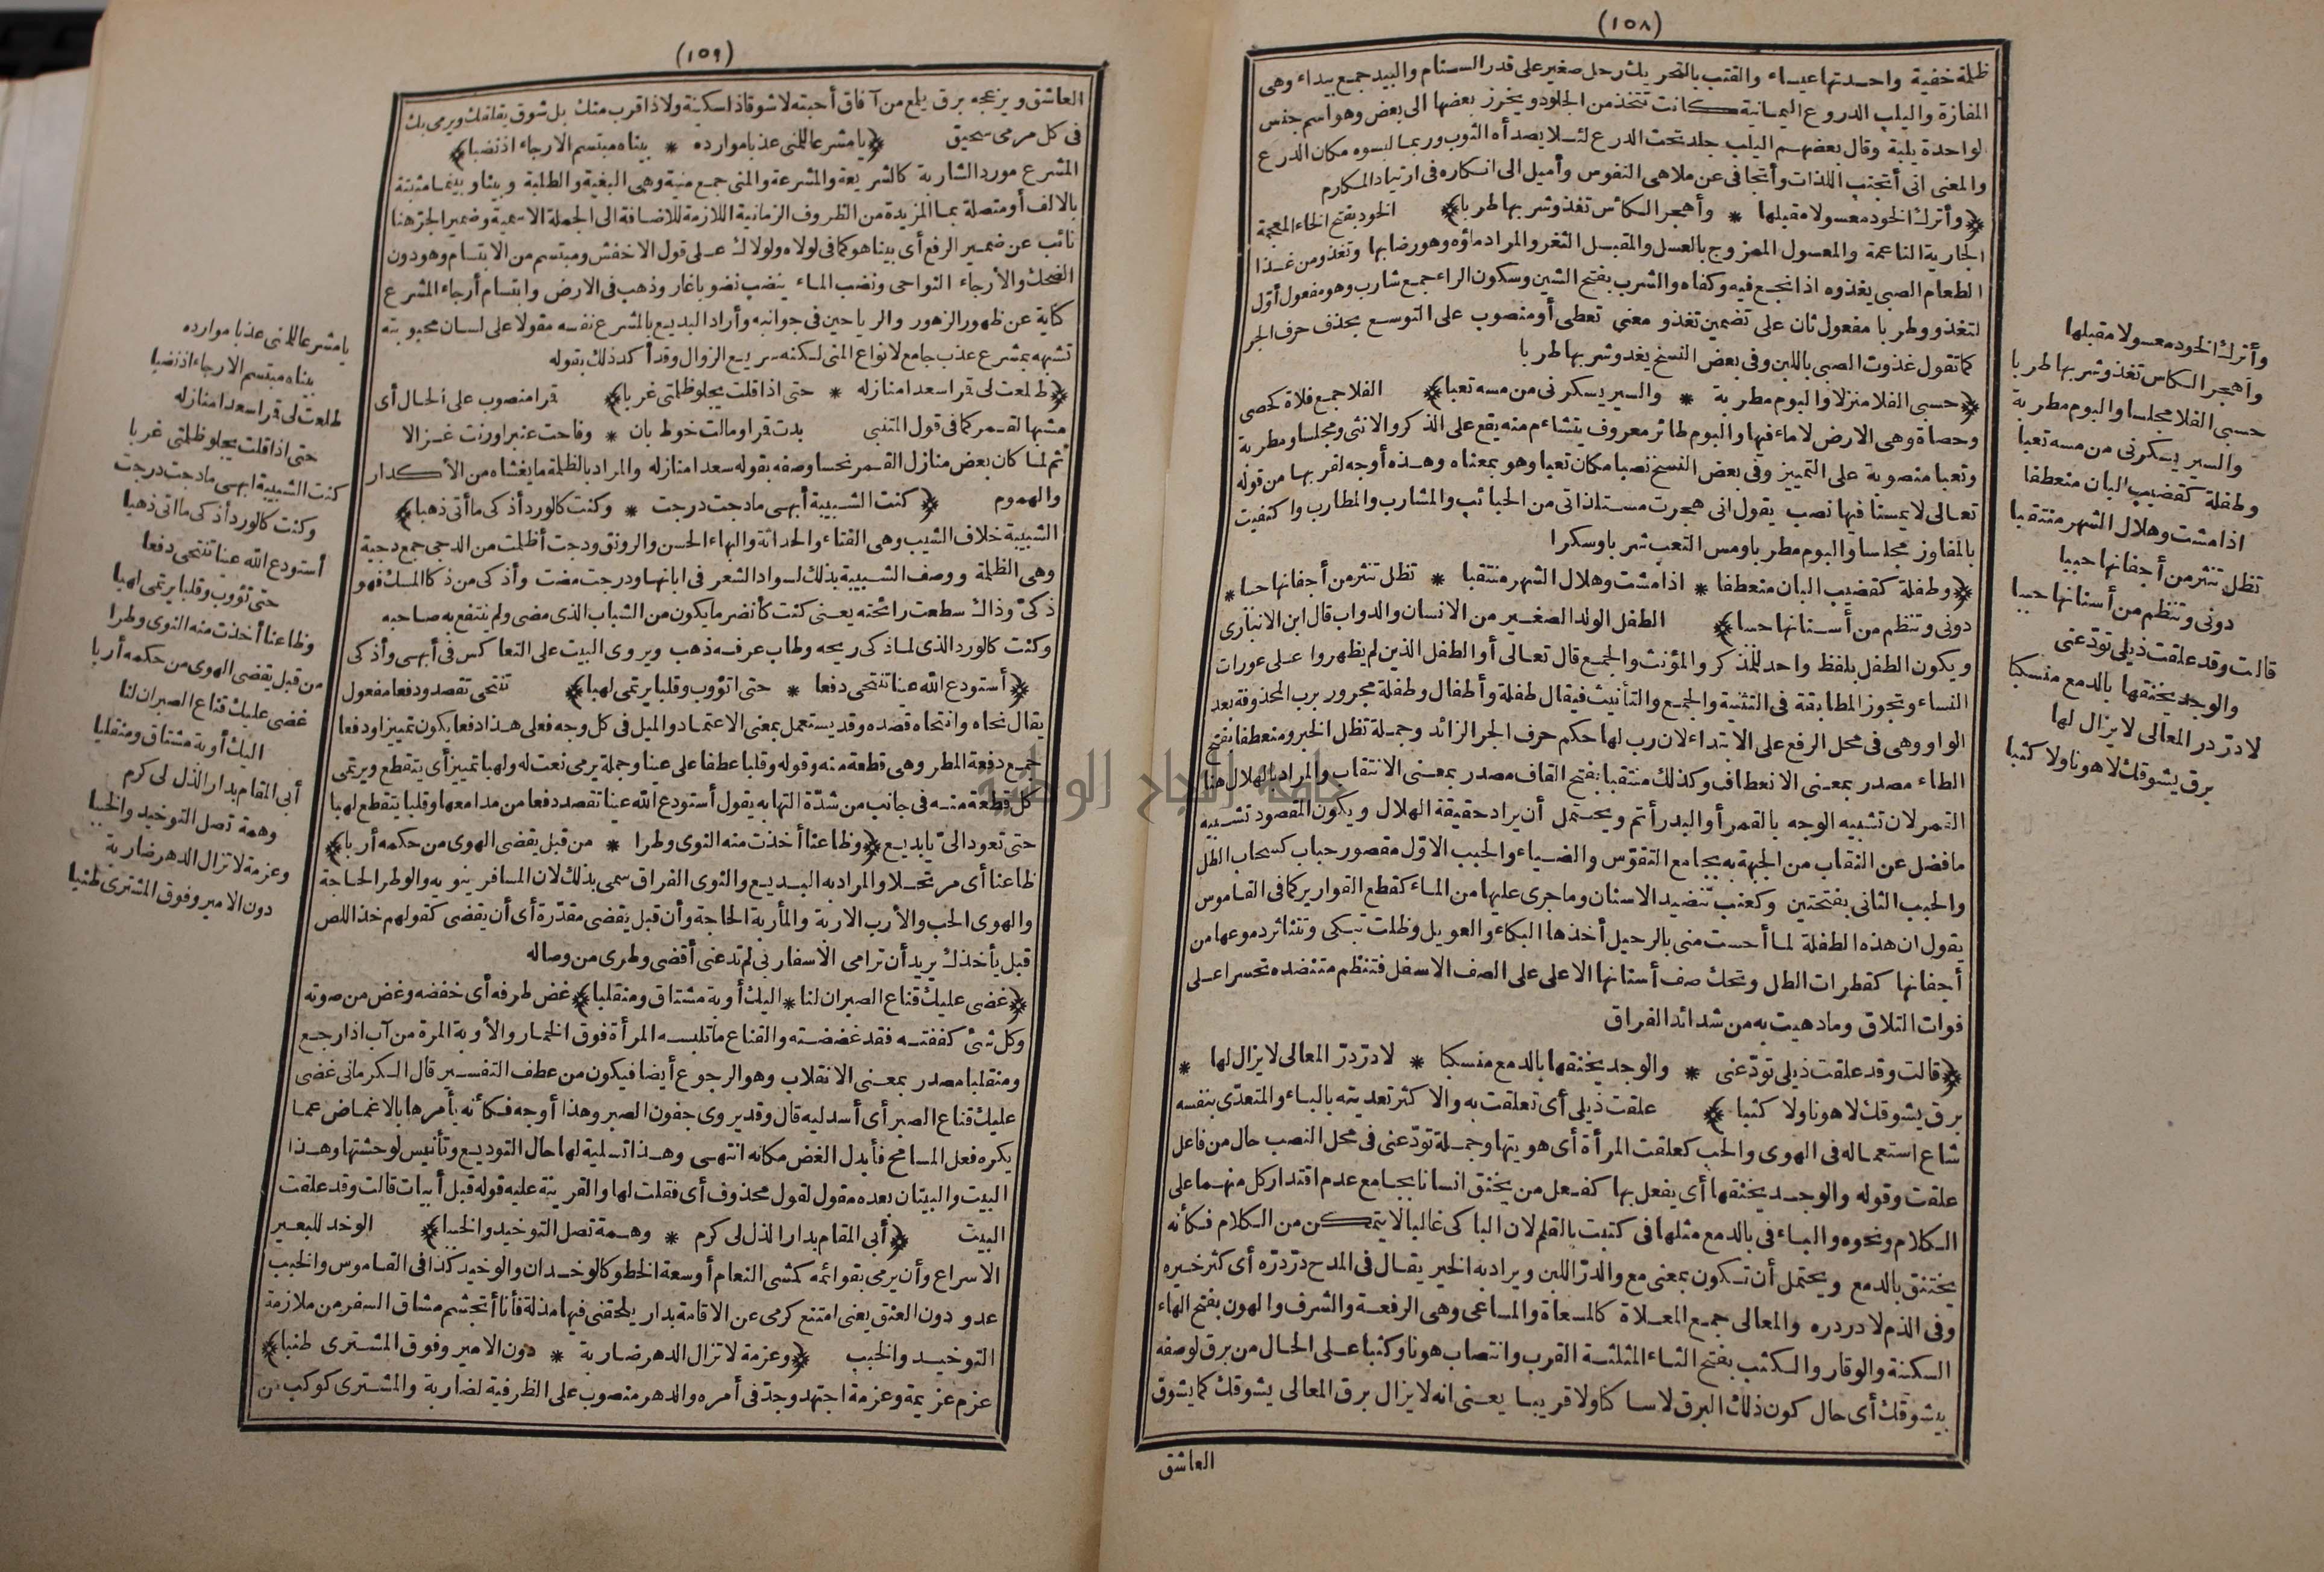 (١٥٨)
ظلمة خفية واحدتها عيساء والقتب بالتحريك رحل صغير على قدر السنام والبيد جمع بيداء وهى
المفازة واليلب الدروع اليمانية كانت تتخذ من الجلود ويخرز بعضها الى بعض وهو اسم جنس
لواحدة يلبة وقال بعضهم اليلب جلد تحت الدرع لئلا يصدأه الثوب وربما لبسوه مكان الدرع
والمعنى انى أتجنب اللذات وأتجافى عن ملاهى النفوس وأميل الى انكاره فى ارتياد المكارم
﴿وأترك الخود معسولا مقبلها * وأهجر الكأس تغذو شربها طربا﴾ الخود بفتح الخاء المعجمة
الجارية الناعمة والمعسول الممزوج بالعسل والمقبل الثغر والمراد ماؤه وهو رضابها وتغذو من غذا
الطعام الصبى يغذوه اذا نجع فيه وكفاه والشرب بفتح الشين وسكون الراء جمع شارب وهو مفعول أوّل
لتغذو وطربا مفعول ثان على تضمين تغذو معنى تعطى أو منصوب على التوسع بحذف حرف الجر
كما تقول غذوت الصبى باللبن وفى بعض النسخ يغدو شربها طربا
﴿حسبى الفلا منزلا والبوم مطربة * والسير يسكرنى من مسه تعبا﴾ الفلا جمع فلاة كحصى
وحصاة وهى الارض لا ماء فيها والبوم طائر معروف يتشاءم منه يقع على الذكر والانثى ومجلسا ومطربة
وتعبا منصوبة على التمييز وفى بعض النسخ نصبا مكان تعبا وهو بمعناه وهذه أوجه لقربها من قوله
تعالى لا يمسنا فيها نصب يقول انى هجرت مستلذاتى من الحبائب والمشارب والمطارب واكتفيت
بالمفاوز مجلسا والبوم مطربا ومس التعب شربا وسكرا
﴿وطفلة كقضيب البان منعطفا * اذا مشت وهلال الشهر منتقبا * تظل تنثر من أجفانها حببا *
دونى وتنظم من أسنانها حببا﴾ الطفل الولد الصغير من الانسان والدواب قال ابن الانبارى
ويكون الطفل بلفظ واحد للمذكر والمؤنث والجمع قال تعالى أو الطفل الذين لم يظهروا على عورات
النساء وتجوز المطابقة فى التثنية والجمع والتأنيث فيقال طفلة وأطفال وطفلة مجرور برب المحذوفة بعد
الواو وهى فى محل الرفع على الابتداء لان رب لها حكم حرف الجر الزائد وجملة تظل الخبر ومنعطفا بفتح
الطاء مصدر بمعنى الانعطاف وكذلك منتقبا بفتح القاف مصدر بمعنى الانتقاب والمراد بالهلال هنا
القمر لان تشبيه الوجه بالقمر أو البدر أتم ويحتمل أن يراد حقيقة الهلال ويكون المقصود تشبيه
ما فضل عن النقاب من الجبهة به بجامع التقوّس والضياء والحبب الاوّل مقصور حباب كسحاب الطل
والحبب الثانى بفتحتين وكعنب تنضيد الاسنان وما جرى عليها من الماء كقطع القوارير كما فى القاموس
يقول ان هذه الطفلة لما أحست منى بالرحيل أخذها البكاء والعويل وظلت تبكى وتتناثر دموعها من
أجفانها كقطرات الطل وتحك صف أسنانها الاعلى على الصف الاسفل فتنظم متنضده تحسرا على
فوات التلاق وما دهيت به من شدائد الفراق
﴿قالت وقد علقت ذيلى تودّعنى * والوجد يخنقها بالدمع منسكبا * لا درّ درّ المعالى لا يزال لها *
برق يشوقك لا هونا ولا كثبا﴾ علقت ذيلى أى تعلقت به والاكثر تعديته بالباء والمتعدّى بنفسه
شاع استعماله فى الهوى والحب كعلقت المرأة أى هويتها وجملة تودّعنى فى محل النصب حال من فاعل
علقت وقوله والوجد يخنقها أى يفعل بها كفعل من يخنق انسانا بجامع عدم اقتدار كل منهما على
الكلام ونحوه والباء فى بالدمع مثلها فى كتبت بالقلم لان الباكى غالبا لا يتمكن من الكلام فكأنه
يختنق بالدمع ويحتمل أن تكون بمعنى مع والدرّ اللبن ويراد به الخير يقال فى المدح درّ درّه أى كثر خيره
وفى الذم لا در دره والمعالى جمع المعلاة كالمسعاة والمساعى وهى الرفعة والشرف والهون بفتح الهاء
السكنة والوقار والكثب بفتح الثاء المثلثة القرب وانتصاب هونا وكثبا على الحال من برق لوصفه
بيشوقك أى حال كون ذلك البرق لا ساكنا ولا قريبا يعنى انه لا يزال برق المعالى يشوقك كما يشوق
العاشق
وأترك الخود معسولا مقبلها
وأهجر الكأس تغذو شربها طربا
حسبى الفلا مجلسا والبوم مطربة
والسير يسكرنى من مسه تعبا
وطفلة كقضيب البان منعطفا
اذا مشت وهلال الشهر منتقبا
تظل تنثر من أجفانها حببا
دونى وتنظم من أسنانها حببا
قالت وقد علقت ذيلى تودّعنى
والوجد يخنقها بالدمع منسكبا
لا درّ در المعالى لا يزال لها
برق يشوقك لا هونا ولا كثبا
(١٥٩)
العاشق ويزعجه برق يلمع من آفاق أحبته لا شوقا ذا سكينة ولا ذا قرب منك بل شوق يقلقك ويرمى بك
فى كل مرمى سحيق ﴿يا مشرعا للمنى عذبا موارده * بيناه مبتسم الارجاء اذ نضبا﴾
المشرع مورد الشاربة كالشريعة والمشرعة والمنى جمع منية وهى البغية والطلبة وبينا وبينما مثبتة
بالالف أو متصلة بما المزيدة من الظروف الزمانية اللازمة للاضافة الى الجملة الاسمية وضمير الجر هنا
نائب عن ضمير الرفع أى بينا هو كما فى لولاه ولولاك على قول الاخفش ومبتسم من الابتسام وهو دون
الضحك والأرجاء النواحى ونضب الماء ينضب نضوبا غار وذهب فى الارض وابتسام أرجاء المشرع
كناية عن ظهور الزهور والرياحين فى جوانبه وأراد البديع بالمشرع نفسه مقولا على لسان محبوبته
تشبهه بمشرع عذب جامع لانواع المنى لكنه سريع الزوال وقد أكد ذلك بقوله
﴿طلعت لى قمرا سعدا منازله * حتى اذا قلت يجلو ظلمتى غربا﴾ قمرا منصوب على الحال أى
مشبها لقمر كما فى قول المتنبى بدت قمرا ومالت خوط بان * وفاحت عنبرا ورنت غزالا
ثم لما كان بعض منازل القمر نحسا وصفه بقوله سعدا منازله والمراد بالظلمة ما يغشاه من الأكدار
والهموم ﴿كنت الشبيبة أبهى ما دجت درجت * وكنت كالورد أذكى ما أتى ذهبا﴾
الشبيبة خلاف الشيب وهى الفتاء والحداثة والبهاء الحسن والرونق ودجت أظلمت من الدجى جمع دجية
وهى الظلمة ووصف الشبيبة بذلك لسواد الشعر فى ابانها ودرجت مضت وأذكى من ذكا المسك فهو
ذكىّ وذاك سطعت رائحته يعنى كنت كأنضر ما يكون من الشباب الذى مضى ولم ينتفع به صاحبه
وكنت كالورد الذى لما ذكى ريحه وطاب عرفه ذهب ويروى البيت على التعاكس فى أبهى وأذكى
﴿أستودع الله عينا تنتحى دفعا * حتى اتؤوب وقلبا يرتمى لهبا﴾ تنتحى تقصد ودفعا مفعول
يقال نحاه وانتحاه قصده وقد يستعمل بمعنى الاعتماد والميل فى كل وجه فعلى هذا دفعا يكون تمييزا ودفعا
جمع دفعة المطر وهى قطعة منه وقوله وقلبا عطفا على عينا وجملة يرمى نعت له ولهبا تمييز أى يتقطع ويرتمى
كل قطعة منه فى جانب من شدّة التهابه يقول أستودع الله عينا تقصد دفعا من مدامعها وقلبا يتقطع لهبا
حتى تعود الىّ يا بديع ﴿وظاعنا أخذت منه النوى وطرا * من قبل يقضى الهوى من حكمه أربا﴾
ظاعنا أى مرتحلا والمراد به البديع والنوى الفراق سمى بذلك لان المسافر ينويه والوطر الحاجة
والهوى الحب والأرب الاربة والمأربة الحاجة وأن قبل يقضى مقدّرة أى أن يقضى كقولهم خذ اللص
قبل يأخذك يريد أن ترامى الاسفار بى لم تدعنى أقضى وطرى من وصاله
﴿غضى عليك قناع الصبر ان لنا * اليك أوبة مشتاق ومنقلبا﴾ غض طرفه أى خفضه وغض من صوته
وكل شئ كففته فقد غضضته والقناع ما تلبسه المرأة فوق الخمار والأوبة المرة من آب اذا رجع
ومنقلبا مصدر بمعنى الانقلاب وهو الرجوع أيضا فيكون من عطف التفسير قال الكرمانى غضى
عليك قناع الصبر أى أسدليه قال وقد يروى جفون الصبر وهذا أوجه فكأنه يأمرها بالاغماض عما
يكره فعل المسامح فأبدل الغض مكانه انتهى وهذا تسلية لها حال التوديع وتأنيس لوحشتها وهذا
البيت والبيتان بعده مقول لقول محذوف أى فقلت لها والقرينة عليه قوله قبل أبيات قالت وقد علقت
البيت ﴿أبى المقام بدار الذل لى كرم * وهمة تصل التوخيد والخببا﴾ الوخد للبعير
الاسراع وأن يرمى بقوائمه كمشى النعام أو سعة الخطو كالوخدان والوخيد كذا فى القاموس والخبب
عدو دون العنق يعنى امتنع كرمى عن الاقامة بدار يلحقنى فيها مذلة فأنا أتجشم مشاق السفر من ملازمة
التوخيد والخبب ﴿وعزمة لا تزال الدهر ضاربة * دون الامير وفوق المشترى طنبا﴾
عزم عزيمة وعزمة اجتهد وجدّ فى أمره والدهر منصوب على الظرفية لضاربة والمشترى كوكب من
يا مشرعا للمنى عذبا موارده
بيناه مبتسم الارجاء اذ نضبا
طلعت لى قمرا سعدا منازله
حتى اذا قلت يجلو ظلمتى غربا
كنت الشبيبة أبهى ما دجت درجت
وكنت كالورد أذكى ما اتى ذهبا
أستودع الله عينا تنتحى دفعا
حتى تؤوب وقلبا يرتمى لهبا
وظاعنا أخذت منه النوى وطرا
من قبل يقضى الهوى من حكمه أربا
غضى عليك قناع الصبر ان لنا
اليك أوبة مشتاق ومنقلبا
أبى المقام بدار الذل لى كرم
وهمة تصل التوخيد والخببا
وعزمة لا تزال الدهر ضاربة
دون الامير وفوق المشترى طنبا
جامعة النجاح الوطنية